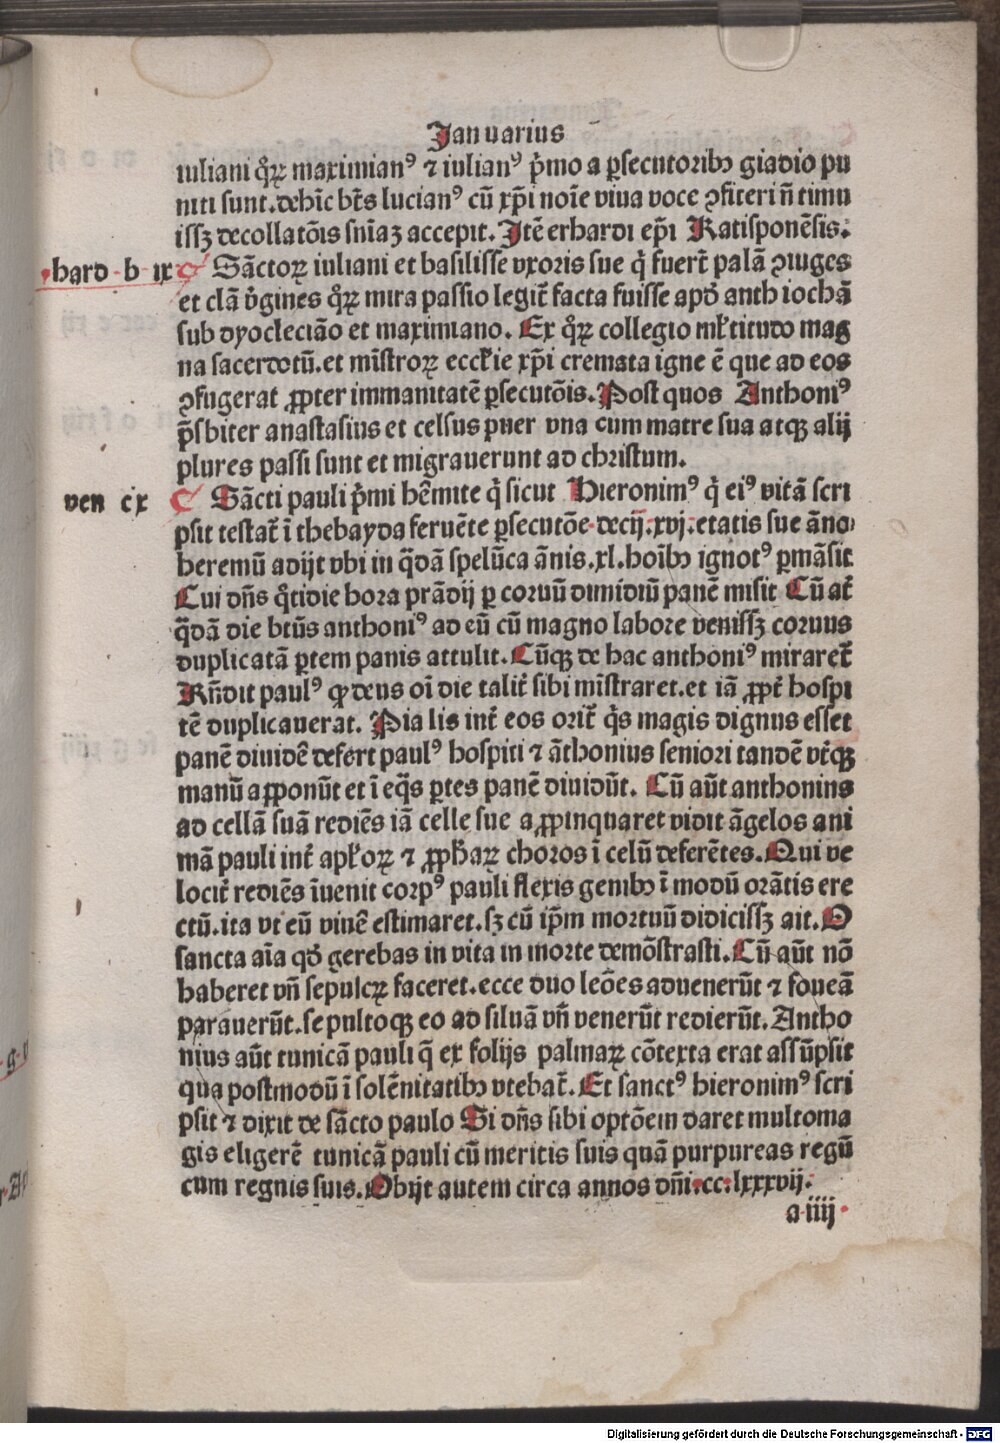 Januarius
iuliani q̊ꝝ maximianꝰ ⁊ iulianꝰ p̍mo a ꝑsecutoribꝫ gladio pu
niti sunt. dehīc bt̄s lucianꝰ cū xp̄i noīe viua voce ꝯfiteri n̄ timu
issꝫ decollatōis sn̄iaꝫ accepit. Itē erhardi ep̄i Ratisponēsis.
hard b ix
Sāctoꝝ iuliani et basilisse vxoris sue q̍ fuert̄ palā ꝯiuges
et clā v̍gines q̊ꝝ mira passio legit̄ facta fuisse apd̍ anthiochā
sub dyocleciāo et maximiano. Ex q̊ꝝ collegio ml̄titudo mag
na sacerdotū. et mīstroꝝ eccl̄ie xp̄i cremata igne ē que ad eos
ꝯfugerat ꝓpter immanitatē ꝑsecutōis. Post quos Anthoniꝰ
p̄sbiter anastasius et celsus puer vna cum matre sua atqꝫ alij
plures passi sunt et migrauerunt ad christum.
ven c x
Sācti pauli p̍mi hēmite q̍ sicut Hieronimꝰ q̍ eiꝰ vitā scri
psit testat̄ ī thebayda feruēte ꝑsecutōe decij. xvj. etatis sue āno
heremū adijt vbi in q̄dā spelūca ānis. xl. hoībꝫ ignotꝰ ꝑmāsit
Cui dn̄s q̊tidie hora prādij ꝑ coruū dimidiū panē misit Cū at̄
q̄dā die btūs anthoniꝰ ad eū cū magno labore venissꝫ coruus
duplicatā ꝑtem panis attulit. Cūqꝫ de hac anthoniꝰ miraret̄
Rn̄dit paulꝰ ꝙ deus oī die talit̄ sibi mīstraret. et iā ꝓpt̄ hospi
tē duplicauerat. Pia lis int̄ eos orit̄ q̍s magis dignus esset
panē diuidē defert paulꝰ hospiti ⁊ āthonius seniori tandē vt̄qꝫ
manū apponūt et ī eq̄s ꝑtes panē diuidūt. Cū aūt anthonius
ad cellā suā rediēs iā celle sue aꝓpinquaret vidit āgelos ani
mā pauli int̄ apl̄oꝝ ⁊ ꝓph̄aꝝ choros ī celū deferētes. Qui ve
locit̄ rediēs īuenit corpꝰ pauli flexis genibꝫ ī modū orātis ere
ctū. ita vt eū viuē estimaret. sꝫ cū ip̄m mortuū didicissꝫ ait. O
sancta aīa qd̍ gerebas in vita in morte demōstrasti. Cū aūt nō
haberet vn̄ sepulcꝝ faceret. ecce duo leōes aduenerūt ⁊ foueā
parauerūt. sepultoqꝫ eo ad siluā vn̄ venerūt redierūt. Antho
nius aūt tunicā pauli q̄ ex folijs palmaꝝ cōtexta erat assūpsit
qua postmodū ī solēnitatibꝫ vtebat̄. Et sanctꝰ hieronimꝰ scri
psit ⁊ dixit de sācto paulo Si dn̄s sibi optōem daret multoma
gis eligerē tunicā pauli cū meritis suis quā purpureas regū
cum regnis suis. Obijt autem circa annos dn̄i. cc. lxxxvij.
a iiij
Digitalisierung gefördert durch die Deutsche Forschungsgemeinschaft - DFG